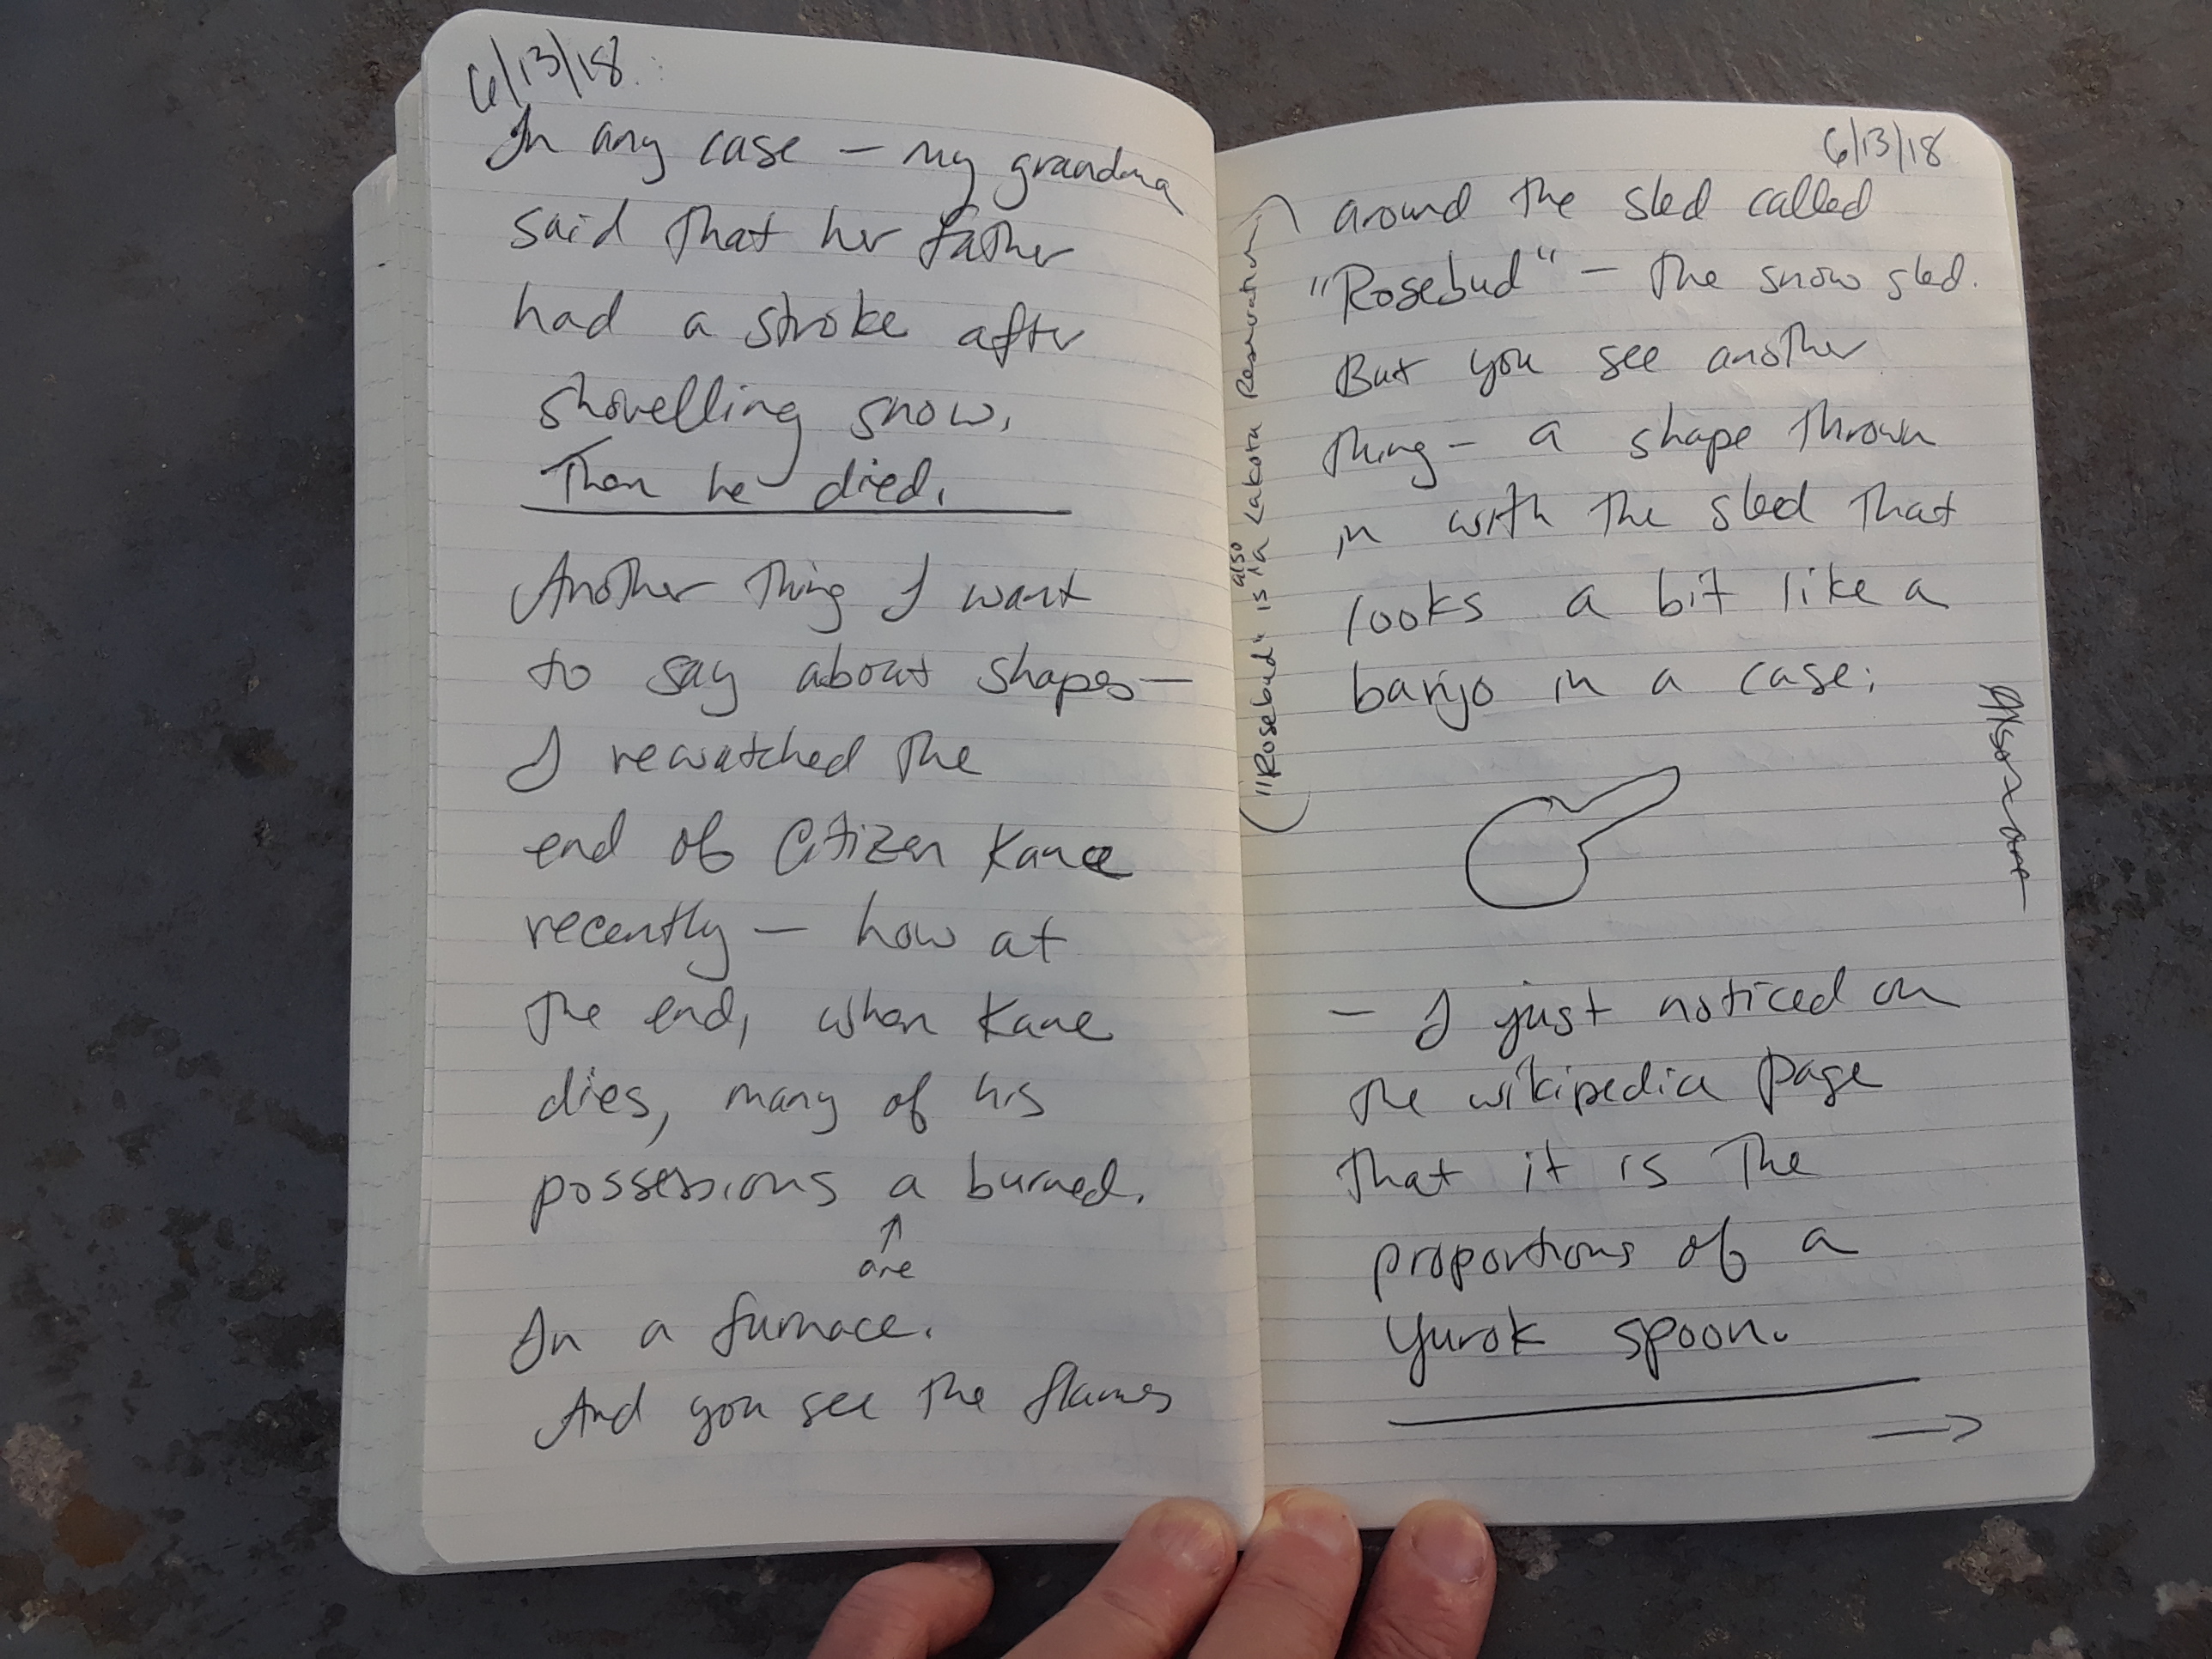 6/13/18
In any case — my grandma
said that her father
had a stroke after
shovelling snow.
Then he died.
Another thing I want
to say about shapes—
I rewatched the
end of Citizen Kane
recently — how at
the end, when Kane
dies, many of his
possessions a burned.
↑
are
In a furnace.
And you see the flames
6/13/18
around the sled called
"Rosebud" — the snow sled.
But you see another
thing — a shape thrown
in with the sled that
looks a bit like a
banjo in a case:
— I just noticed on
the wikipedia page
that it is the
proportions of a
Yurok spoon.
→
("Rosebud" is also a Lakota Reservation)